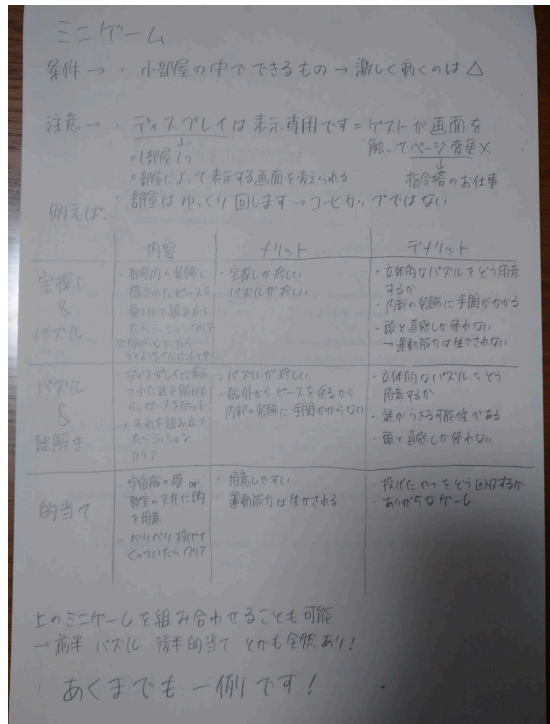 ミニゲーム
条件→ ・小部屋の中でできるもの→激しく動くのは△
注意→ ・ディスプレイは表示専用です=ゲストが画面を
触ってページ変更×
↓
指令塔のお仕事
↓
○1部屋1つ
○部屋によって表示する画面を変えられる
・部屋はゆっくり回します→コーヒーカップではない
例えば、
内容
メリット
デメリット
宝探し
&
パズル
・部屋内の装飾に
隠されたピースを
見つけて組み立て
たらミッションクリア
・宝探しが珍しい
・パズルが珍しい
・立体的なパズルをどう用意
するか
・内部の装飾に手間がかかる
・頭と直感しか使わない
→運動能力は生かされない
パズル
&
謎解き
・ディスプレイに表示
された謎を解けた
ら、ピースをゲット
それを組み立て
たらミッション
クリア
・パズルが珍しい
・船外からピースを送るから
内部の装飾に手間かからない
・立体的なパズルをどう
用意するか
・謎がつきる可能性がある
・頭と直感しか使わない
的当て
・宇宙船の壁or
教室の天井に的
を用意
・ペリペリ投げて
くっついたらクリア
・用意しやすい
・運動能力は生かされる
・投げたやつをどう回収するか
・ありがちなゲーム
上のミニゲームを組み合わせることも可能
→前半 パズル 後半的当て とかも全然あり!
あくまでも一例です!